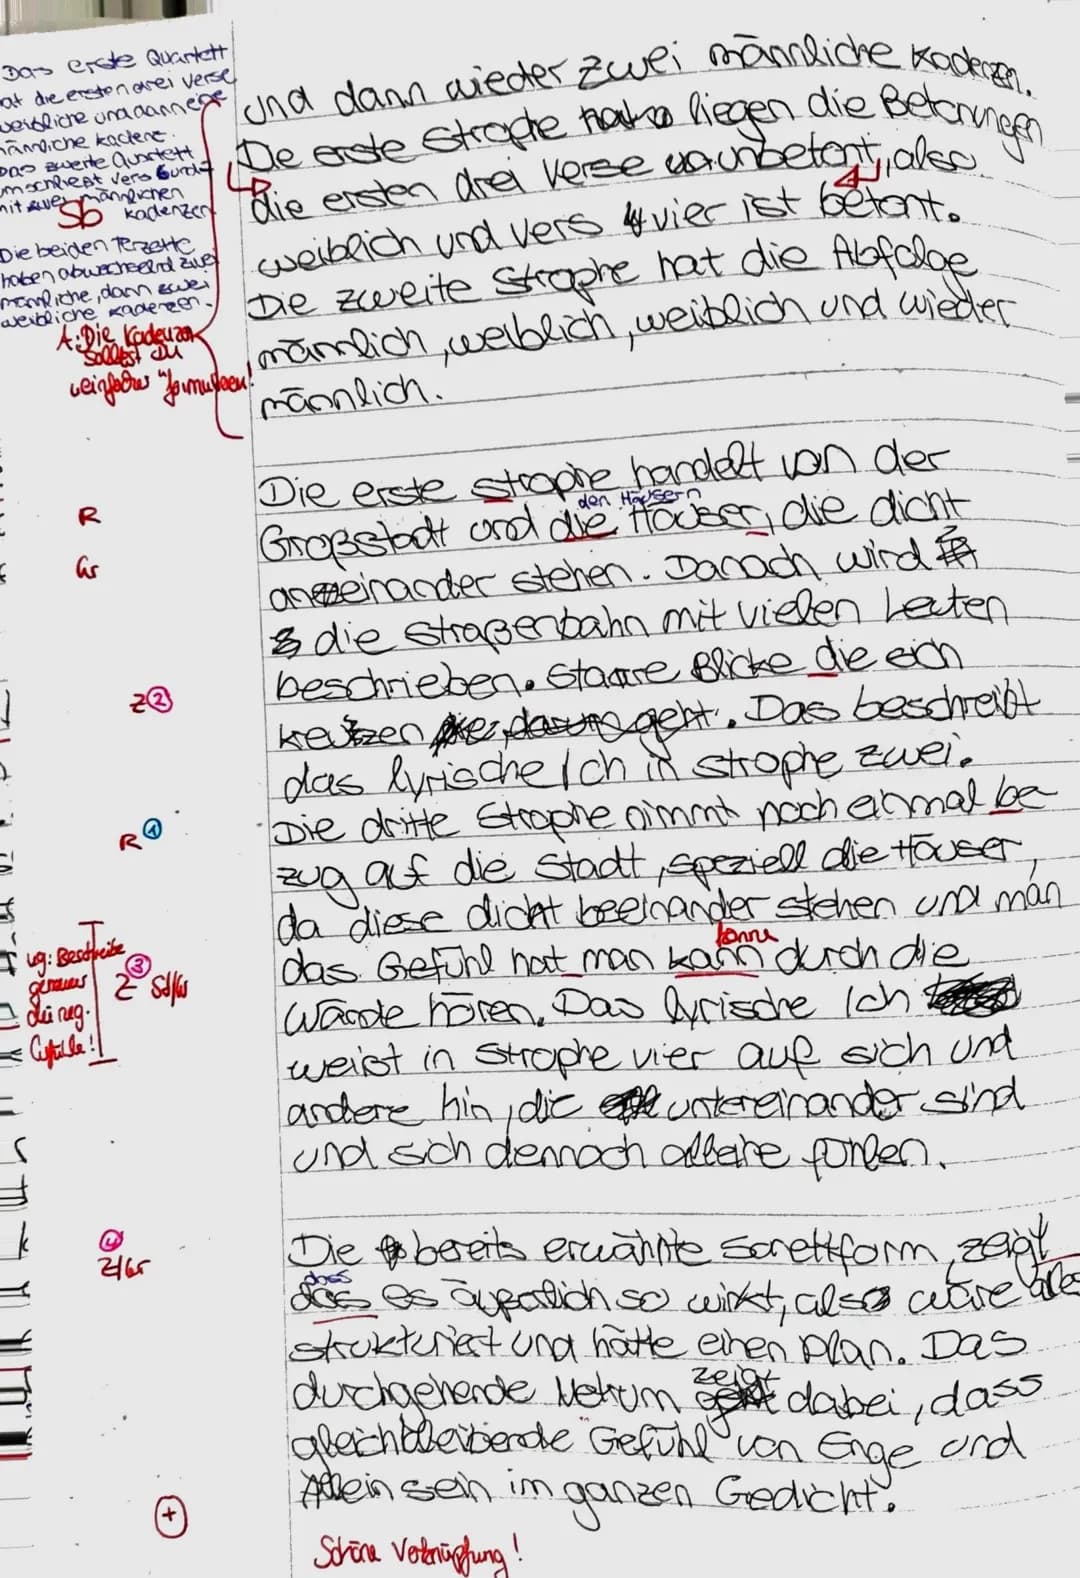 Das erste Quartett
hat die ersten drei Verse
weibliche und dann eine
männliche Kadenz.
Das zweite Quartett
umschließt Vers
mit zwei männlichen
Sb Kadenzen
Die beiden Terzette
haben abwechselnd zwei
männliche, dann zwei
weibliche Kadenzen.
A: Die Kadenzen
solltest du
"einfacher" formulieren!
und dann wieder zwei männliche Kadenzen.
De erste Strophe liegen die Betonungen
die ersten drei Verse unbetont, also
weiblich und Vers vier ist betont.
Die zweite Strophe hat die Abfolge
männlich, weiblich, weiblich und wieder
männlich.
Die erste Strophe handelt von der
den Häusern
R Großstadt und die Häuser, die dicht
Gr aneinander stehen. Danach wird
die Straßenbahn mit vielen Leuten
beschrieben. Starre Blicke die sich
Z ② kreuzen. Das beschreibt
das lyrische Ich in Strophe zwei.
Die dritte Strophe nimmt noch einmal be-
R ① zug auf die Stadt, speziell die Häuser,
da diese dicht beieinander stehen und man
könne
das Gefühl hat man kann durch die
Z ③ Sd/Gr Wände hören. Das lyrische Ich
ug: Beschreibe
genauer
die neg.
Gefühle!
weist in Strophe vier auf sich und
andere hin, die untereinander sind
und sich dennoch alleine fühlen.
④
Z/Gr
Die bereits erwähnte Sonettform, zeigt
dass
das es äußerlich so wirkt, also wäre alles
strukturiert und hätte einen Plan. Das
zeigt
durchgehende Metrum dabei, dass
gleichbleibende Gefühl von Enge und
Allein sein im ganzen Gedicht.
+
Schöne Verknüpfung!